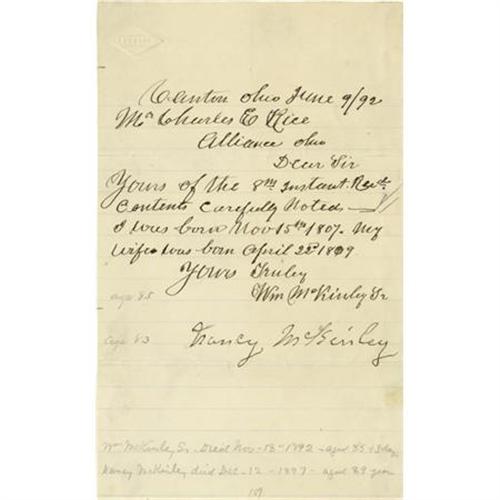 Canton Ohio June 9/92
Mr Charles E Rice
Alliance Ohio
Dear Sir
Yours of the 8th Instant Recd
Contents Carefully Noted
I was born Nov 15th 1807. My
Wife was born April 22d 1809
Yours Truley
Wm McKinley Sr
age 85
age 83
Nancy McKinley
Wm McKinley Sr. Died Nov - 1892 - aged 85
Nancy McKinley died Dec - 12 - 1897 - aged 89 years